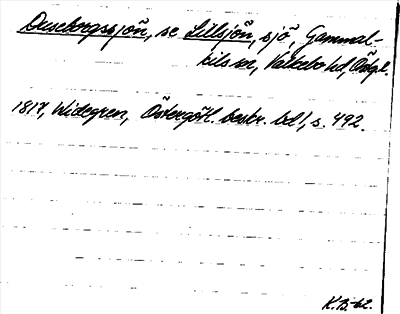 Duseborgssjön, se Lillsjön, sjö, Gammal-
kils sn, Valkebo hd, Östgl.
1817, Widegren, Östergötl. beskr. bd 1, s. 492.
K.B-bl.